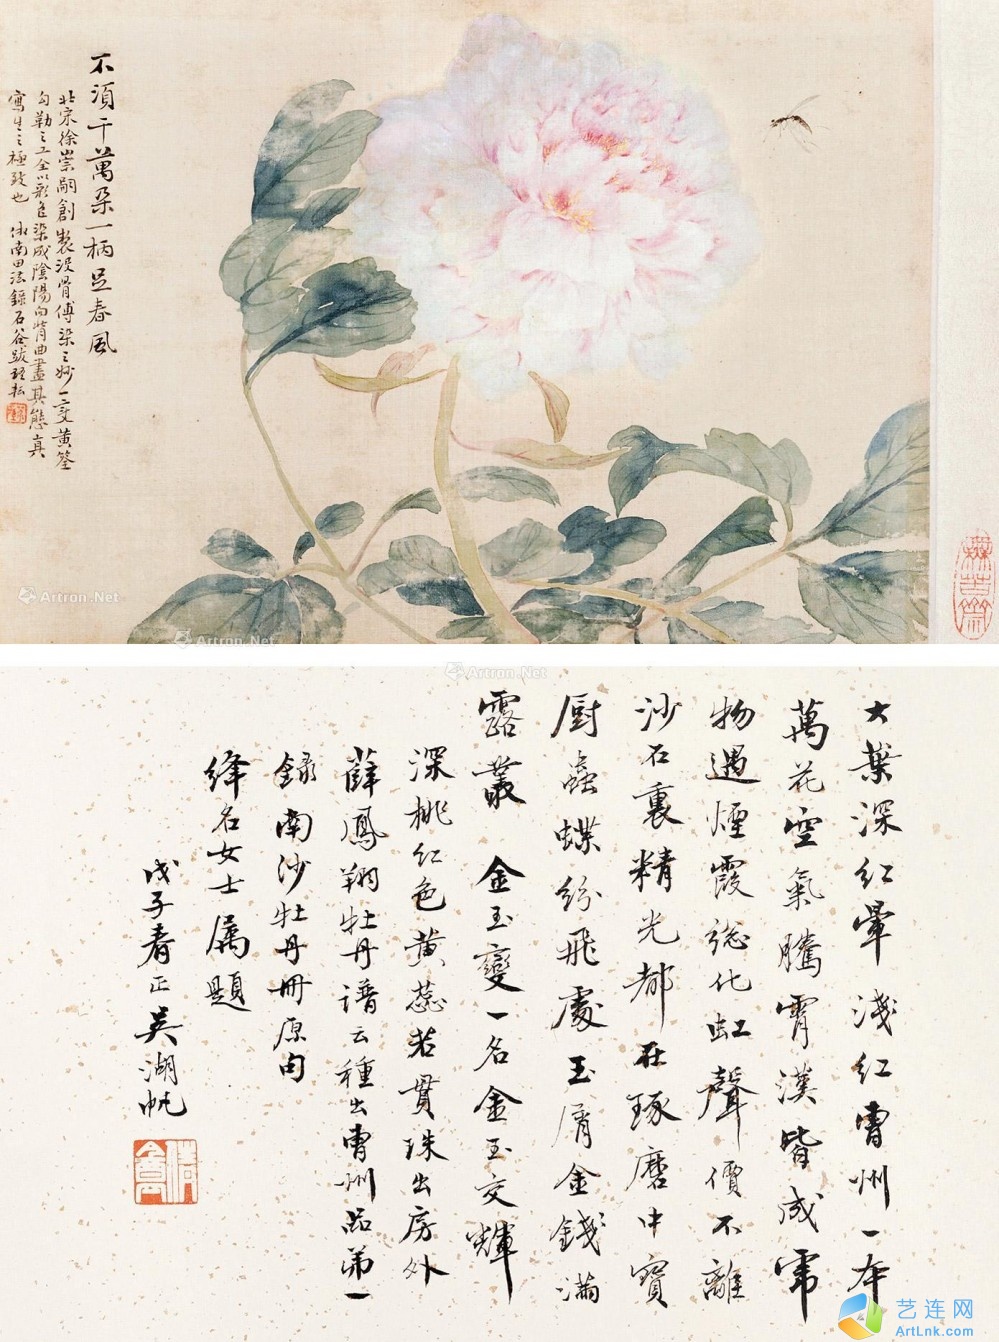 不須千萬朵一柄足春風
北宋徐崇嗣創製没骨傅染之妙一變黄筌
勾勒之工全以彩色染成陰陽向背曲盡其態真
寫生之極致也 南田法錄石谷跋
Artron.Net
Artron.Net
Artron.Net
大葉深紅暈淺紅曹州一本
萬花空氣騰霄漢皆成霈
物遇煙霞總化虹聲價不離
沙石裏精光都在琢磨中寶
厨蟲蝶紛飛處玉屑金錢滿
露叢 金玉變一名金玉交輝
深桃紅色黄蕊若貫珠出房外
薛鳳翔牡丹譜云種出曹州品第一
錄南沙牡丹冊原句
絳名女士属題
戊子春正吴湖帆
艺连网
ArtLnk.com